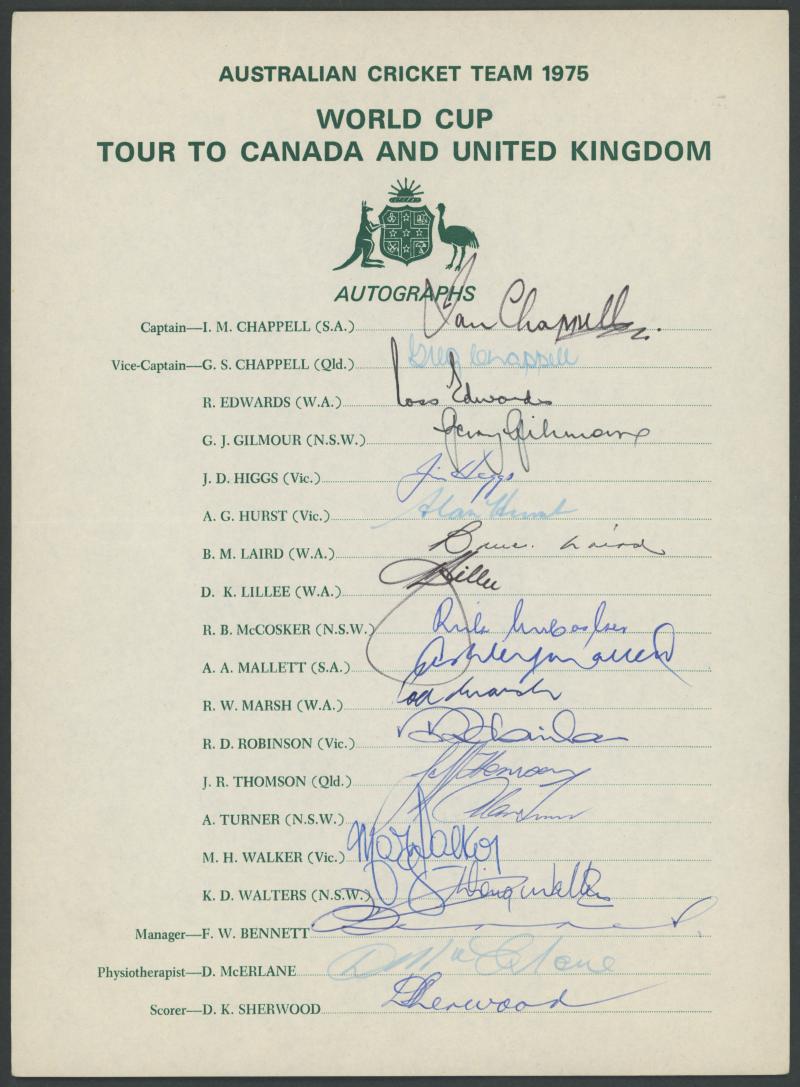 AUSTRALIAN CRICKET TEAM 1975
WORLD CUP
TOUR TO CANADA AND UNITED KINGDOM
AUTOGRAPHS
Captain—I. M. CHAPPELL (S.A.) Ian Chappell
Vice-Captain—G. S. CHAPPELL (Qld.) Greg Chappell
R. EDWARDS (W.A.) Ross Edwards
G. J. GILMOUR (N.S.W.) Gary Gilmour
J. D. HIGGS (Vic.) Jim Higgs
A. G. HURST (Vic.) Alan Hurst
B. M. LAIRD (W.A.) Bruce Laird
D. K. LILLEE (W.A.) Lillee
R. B. McCOSKER (N.S.W.) Rick McCosker
A. A. MALLETT (S.A.) Ashley Mallett
R. W. MARSH (W.A.) Rod Marsh
R. D. ROBINSON (Vic.)
J. R. THOMSON (Qld.) Jeff Thomson
A. TURNER (N.S.W.) Alan Turner
M. H. WALKER (Vic.) Max Walker
K. D. WALTERS (N.S.W.) Doug Walters
Manager—F. W. BENNETT
Physiotherapist—D. McERLANE D McErlane
Scorer—D. K. SHERWOOD Sherwood